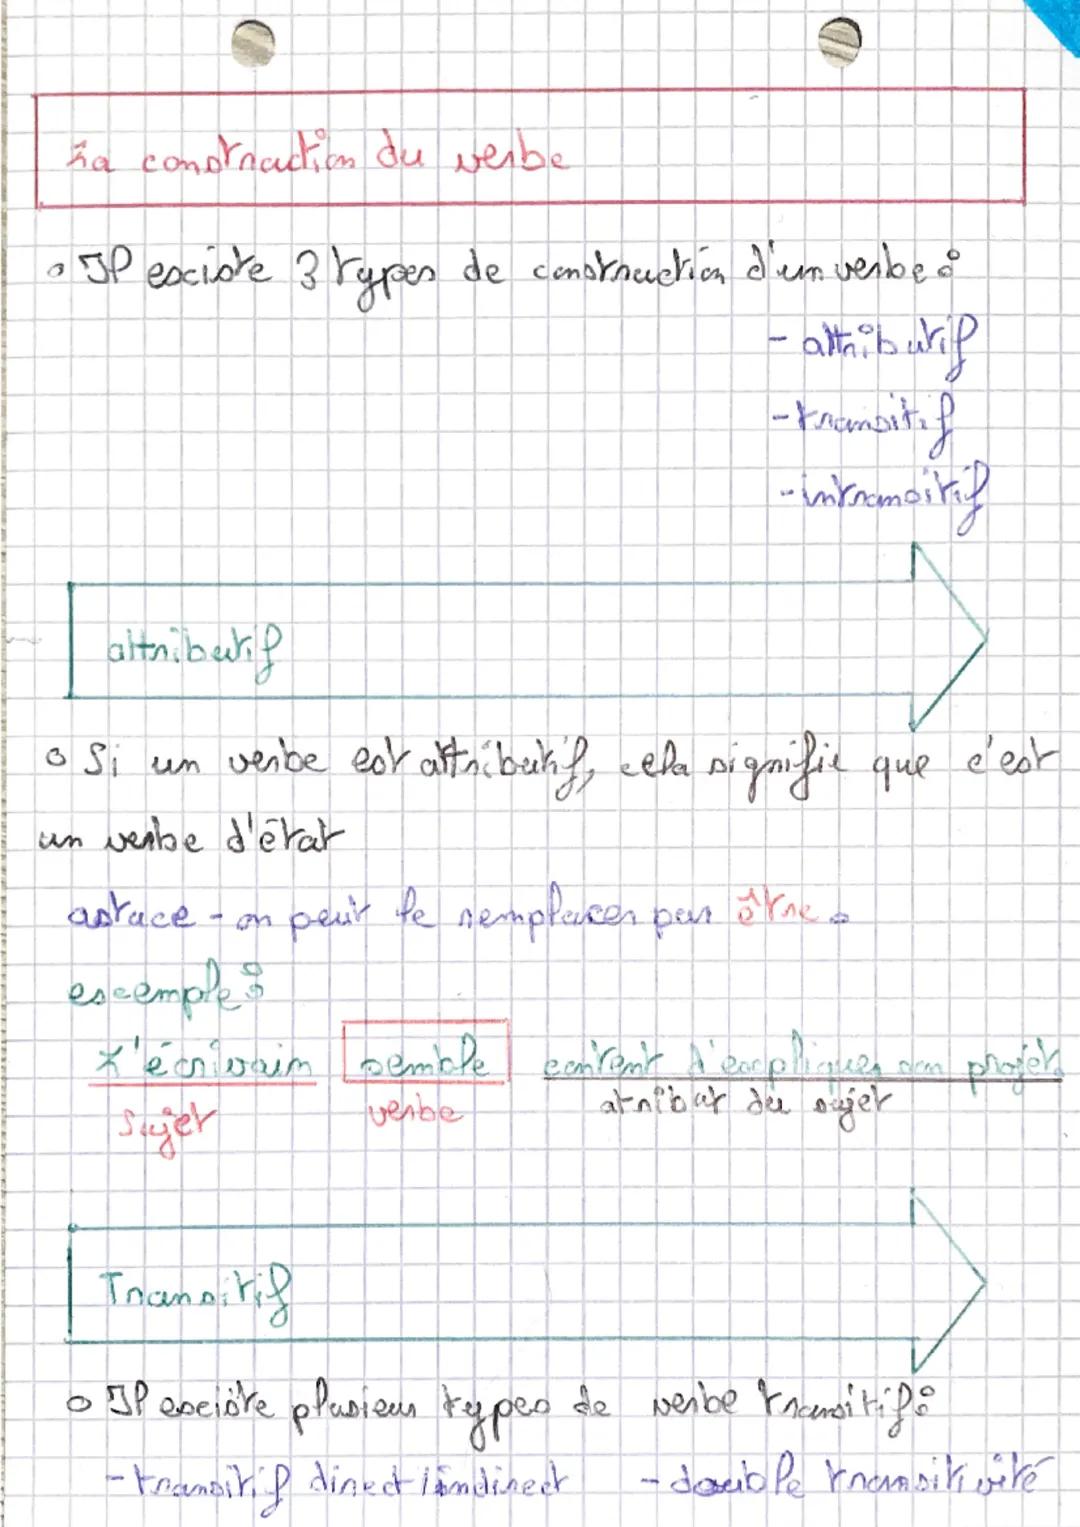 La construction du verbe
• Il existe 3 types de construction d'un verbe :
- attributif
- transitif
- intransitif
attributif
• Si un verbe est attributif, cela signifie que c'est
un verbe d'état
astuce - on peut le remplacer par être.
exemple :
L'écrivain semble content d'expliquer son projet.
Sujet verbe atribut du sujet
Transitif
• Il existe plusieur types de verbe transitif :
- transitif direct / indirect - double transitivité